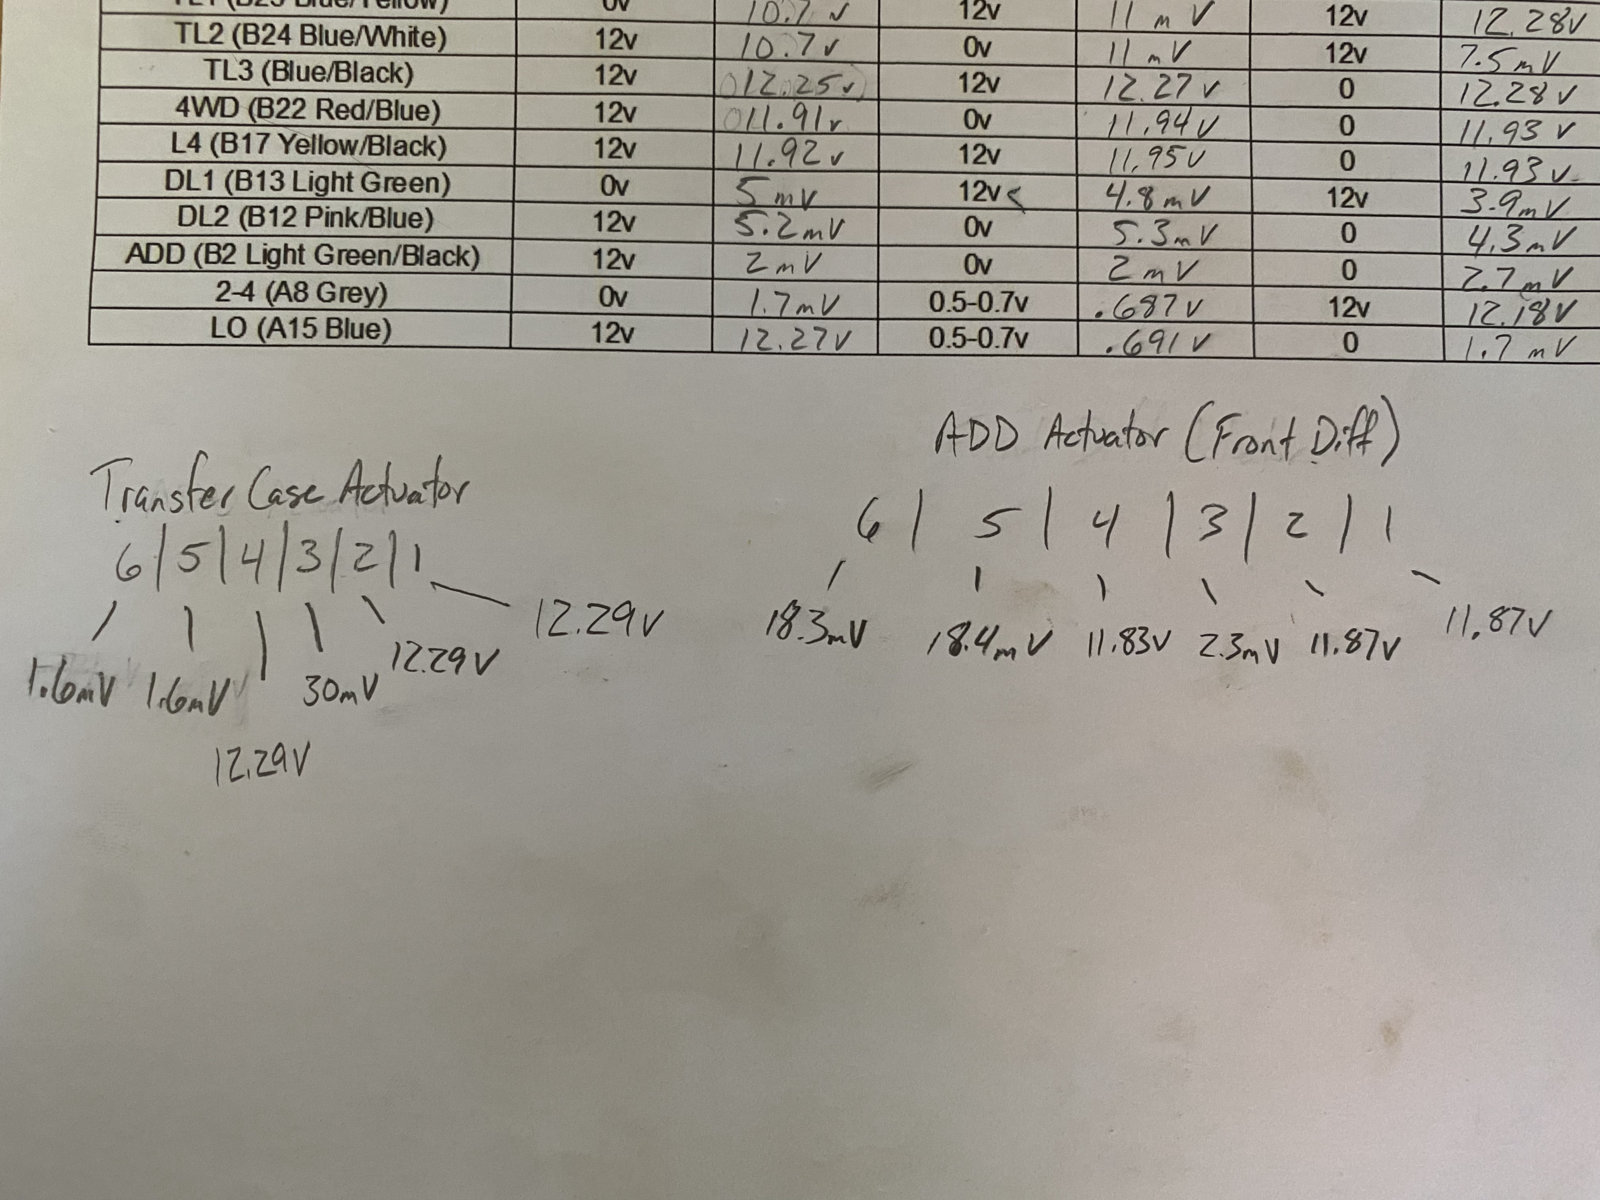 TL1 (B25 Blue/Yellow) 0v 10.7 v 12v 11 mV 12v 12.28v
TL2 (B24 Blue/White) 12v 10.7v 0v 11 mV 12v 7.5mV
TL3 (Blue/Black) 12v 12.25v 12v 12.27v 0 12.28v
4WD (B22 Red/Blue) 12v 11.91v 0v 11.94v 0 11.93 v
L4 (B17 Yellow/Black) 12v 11.92v 12v 11.95v 0 11.93v
DL1 (B13 Light Green) 0v 5mV 12v< 4.8mV 12v 3.9mV
DL2 (B12 Pink/Blue) 12v 5.2mV 0v 5.3mV 0 4.3mV
ADD (B2 Light Green/Black) 12v 2mV 0v 2mV 0 2.7mV
2-4 (A8 Grey) 0v 1.7mV 0.5-0.7v .687v 12v 12.18v
LO (A15 Blue) 12v 12.27v 0.5-0.7v .691v 0 1.7 mV
ADD Actuator (Front Diff)
6 | 5 | 4 | 3 | 2 | 1
18.3mV 18.4mV 11.83v 2.3mV 11.87v 11.87v
Transfer Case Actuator
6|5|4|3|2|1
1.6mV 1.6mV 12.29v 30mV 12.29v 12.29v